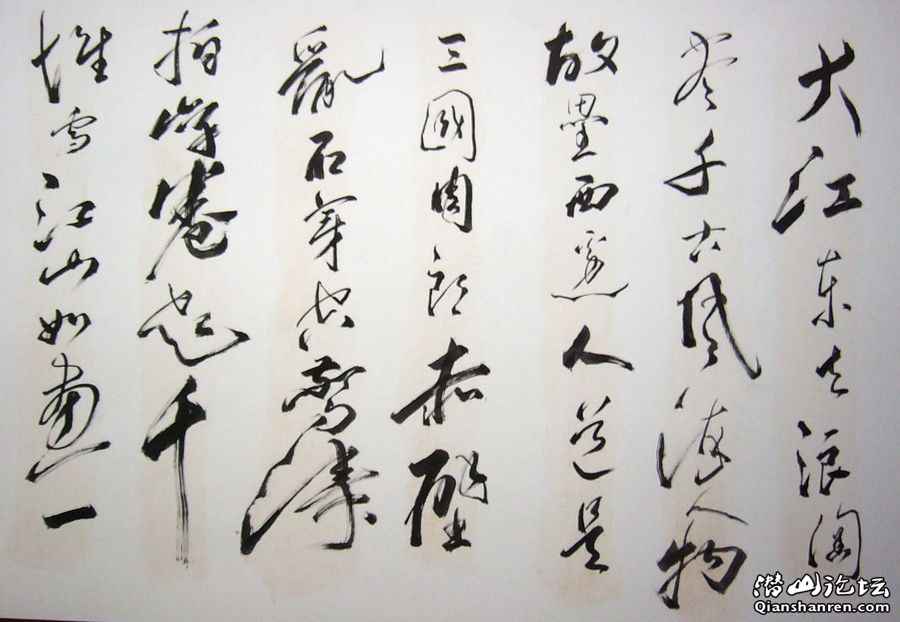 大江東去浪淘
盡千古風流人物
故壘西邊人道是
三國周郎赤壁
亂石穿空驚濤
拍岸捲起千
堆雪江山如畫一
潜山论坛
Qianshanren.com